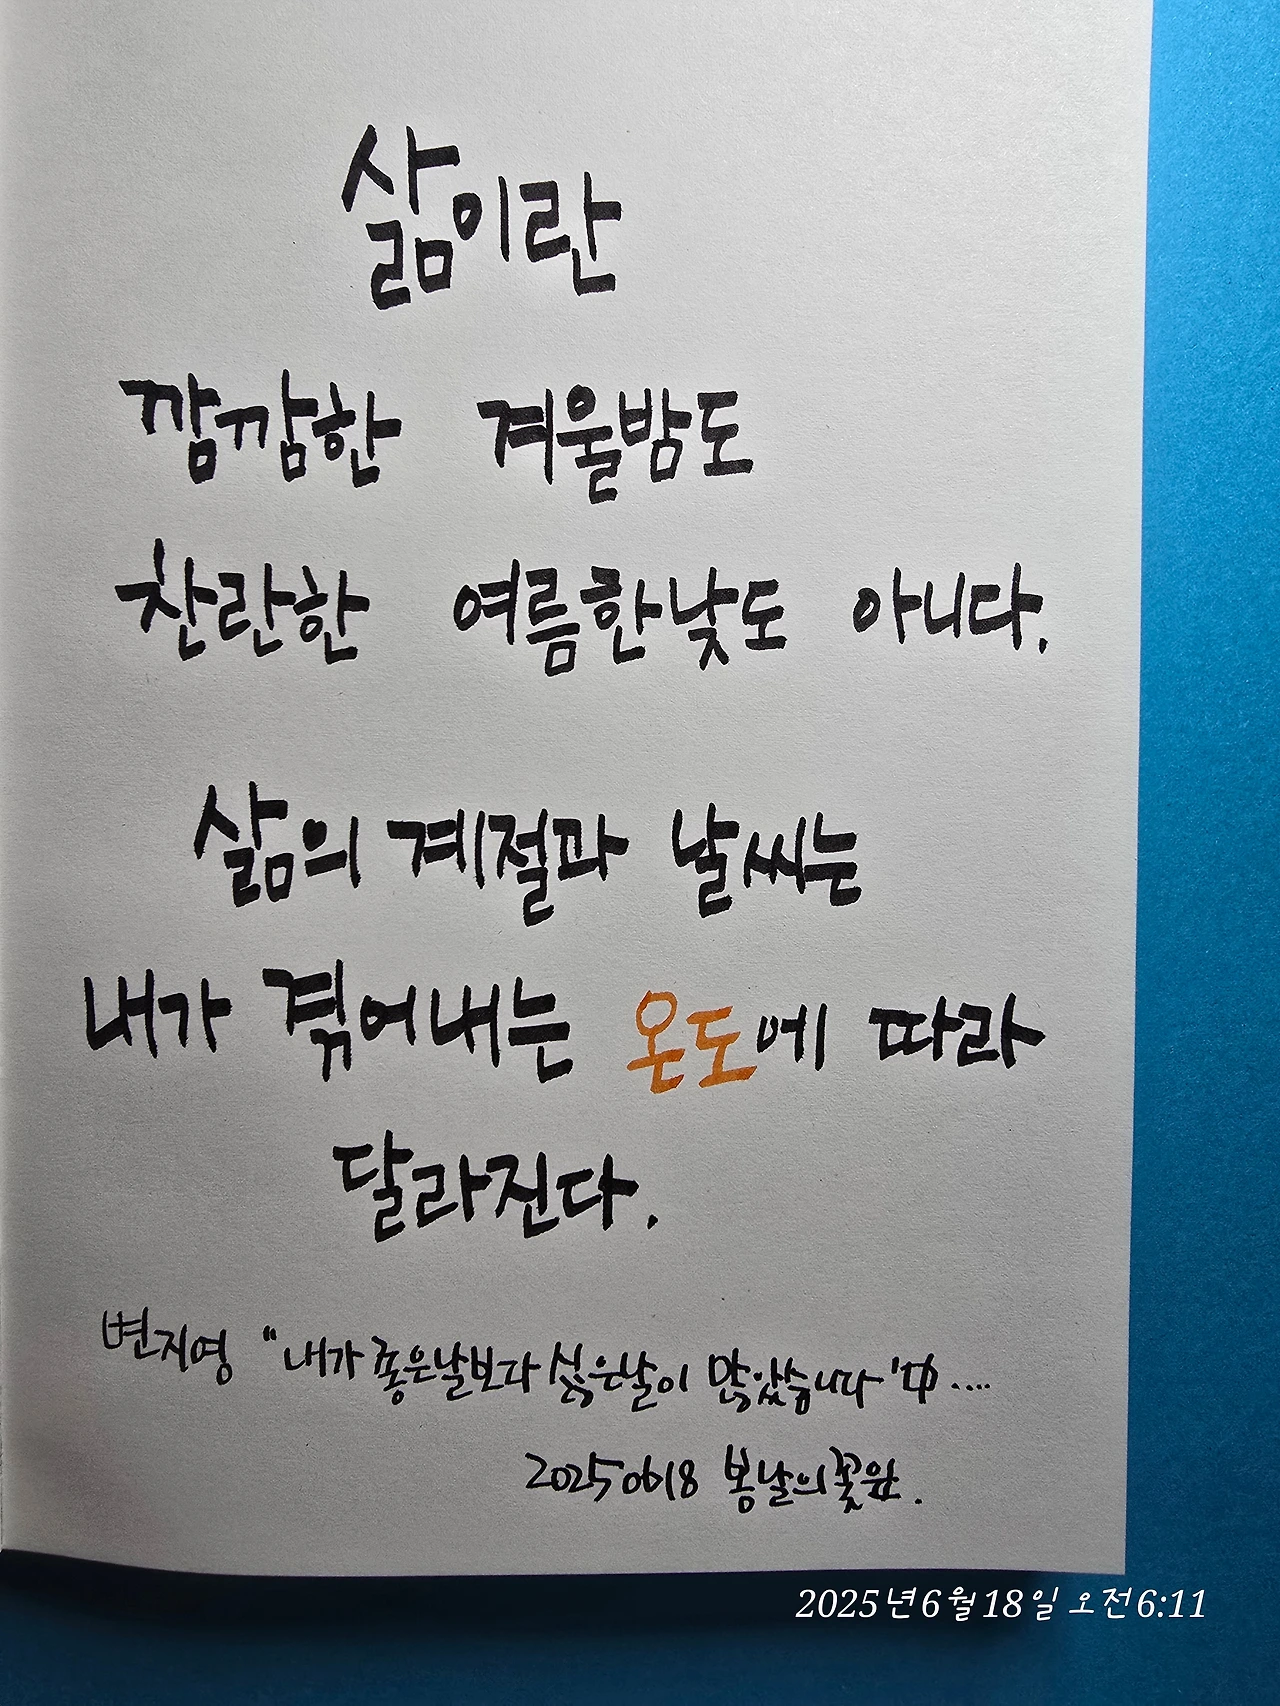 삶이란
깜깜한 겨울밤도
찬란한 여름한낮도 아니다.
삶의 계절과 날씨는
내가 겪어내는 온도에 따라
달라진다.
변지영 "내가 좋은날보다 싫은날이 많았습니다'中....
20250618 봄날의꽃잎.
2025년6월18일 오전6:11